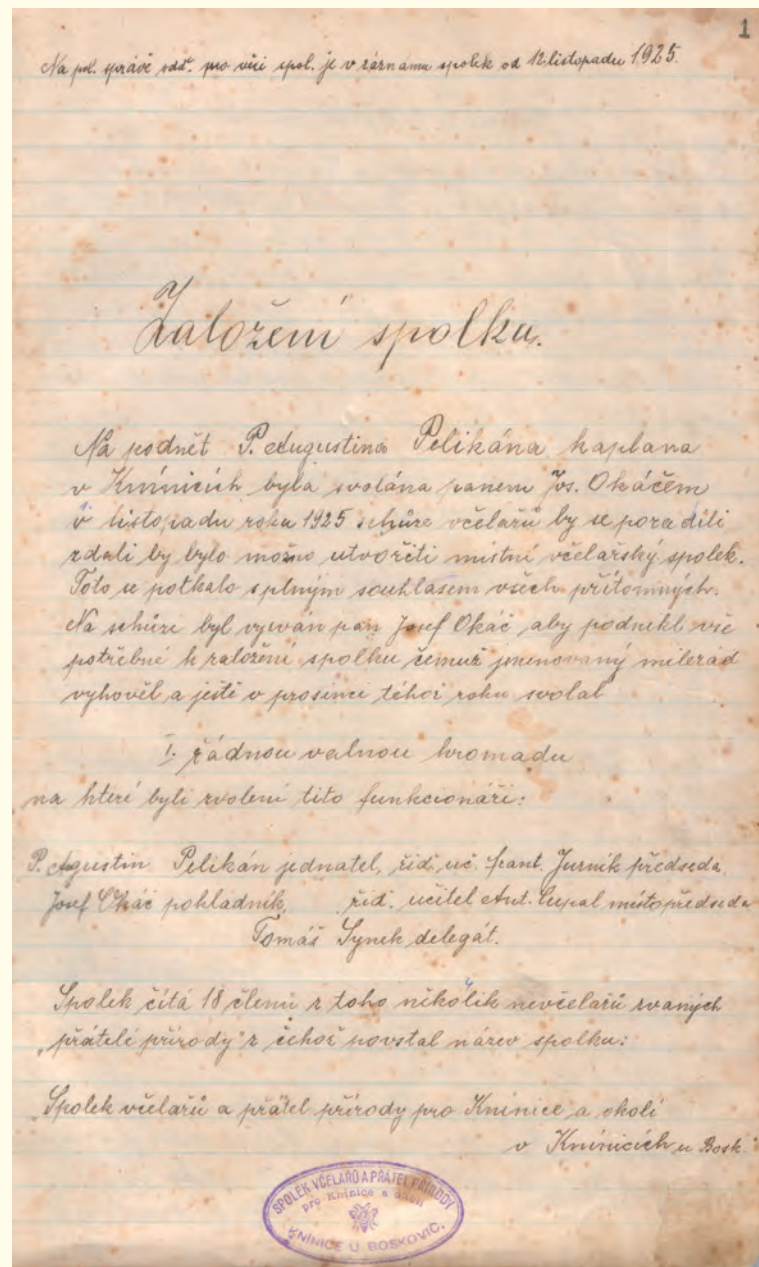 1
Na pol. správě odd. pro věci spol. je v záznamu spolek od 12. listopadu 1925.
Založení spolku.
Na podnět P. Augustina Pelikána kaplana
v Knínicích byla svolána panem Jos. Okáčem
v listopadu roku 1925 schůze včelařů by se poradili
zdali by bylo možno utvořiti místní včelařský spolek.
Toto se potkalo s plným souhlasem všech přítomných.
Na schůze byl vyzván pan Josef Okáč aby podnikl vše
potřebné k založení spolku čemuž jmenovaný milerád
vyhověl a ještě v prosinci téhož roku svolal
I. řádnou valnou hromadu
na které byli zvoleni tito funkcionáři:
P. Agustin Pelikán jednatel, říd. uč. frant. Jurník předseda,
Josef Okáč pokladník, říd. učitel Ant. Cupal místopředseda
Tomáš Synek delegát.
Spolek čítá 18 členů z toho několik nevčelařů zvaných
„přátelé přírody" z čehož povstal název spolku:
Spolek včelařů a přátel přírody pro Knínice a okolí
v Knínicích u Bosk.
SPOLEK VČELAŘŮ A PŘÁTEL PŘÍRODY
pro Knínice a okolí
KNÍNICE U BOSKOVIC.